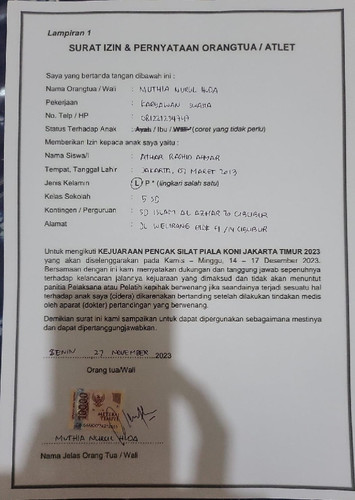 Lampiran 1
SURAT IZIN & PERNYATAAN ORANGTUA / ATLET
Saya yang bertanda tangan dibawah ini :
Nama Orangtua / Wali : MUTHIA NURUL HUDA
Pekerjaan : KARYAWAN SWASTA
No. Telp / HP :
Status Terhadap Anak : Ayah / Ibu / Wali* (coret yang tidak perlu)
Memberikan Izin kepaca anak saya yaitu :
Nama Siswa/i : ATHAR RADHIO AHMAR
Tempat, Tanggal Lahir : JAKARTA, MARET 2013
Jenis Kelamin : L P * (lingkari salah satu)
Kelas Sekolah : 5
Kontingen / Perguruan : SD ISLAM AL AZHAR 20 CIBUBUR
Alamat : JL CIBUBUR
Untuk mengikuti KEJUARAAN PENCAK SILAT PIALA KONI JAKARTA TIMUR 2023
yang akan diselenggarakan pada Kamis – Minggu, 14 – 17 Desember 2023.
Bersamaan dengan ini kami menyatakan dukungan dan tanggung jawab sepenuhnya
terhadap kelancaran jalannya kejuaraan yang dimaksud dan tidak akan menuntut
panitia Pelaksana atau Pelatih kepihak berwenang jika seandainya terjadi sesuatu hal
terhadap anak saya (cidera) dikarenakan bertanding setelah dilakukan tindakan medis
oleh aparat (dokter) pertandingan yang berwenang.
Demikian surat ini kami sampaikan untuk dapat dipergunakan sebagaimana mestinya
dan dapat dipertanggungjawabkan.
SENIN 27 NOVEMBER 2023
Orang tua/Wali
10000
MUTHIA NURUL HUDA
Nama Jelas Orang Tua / Wali